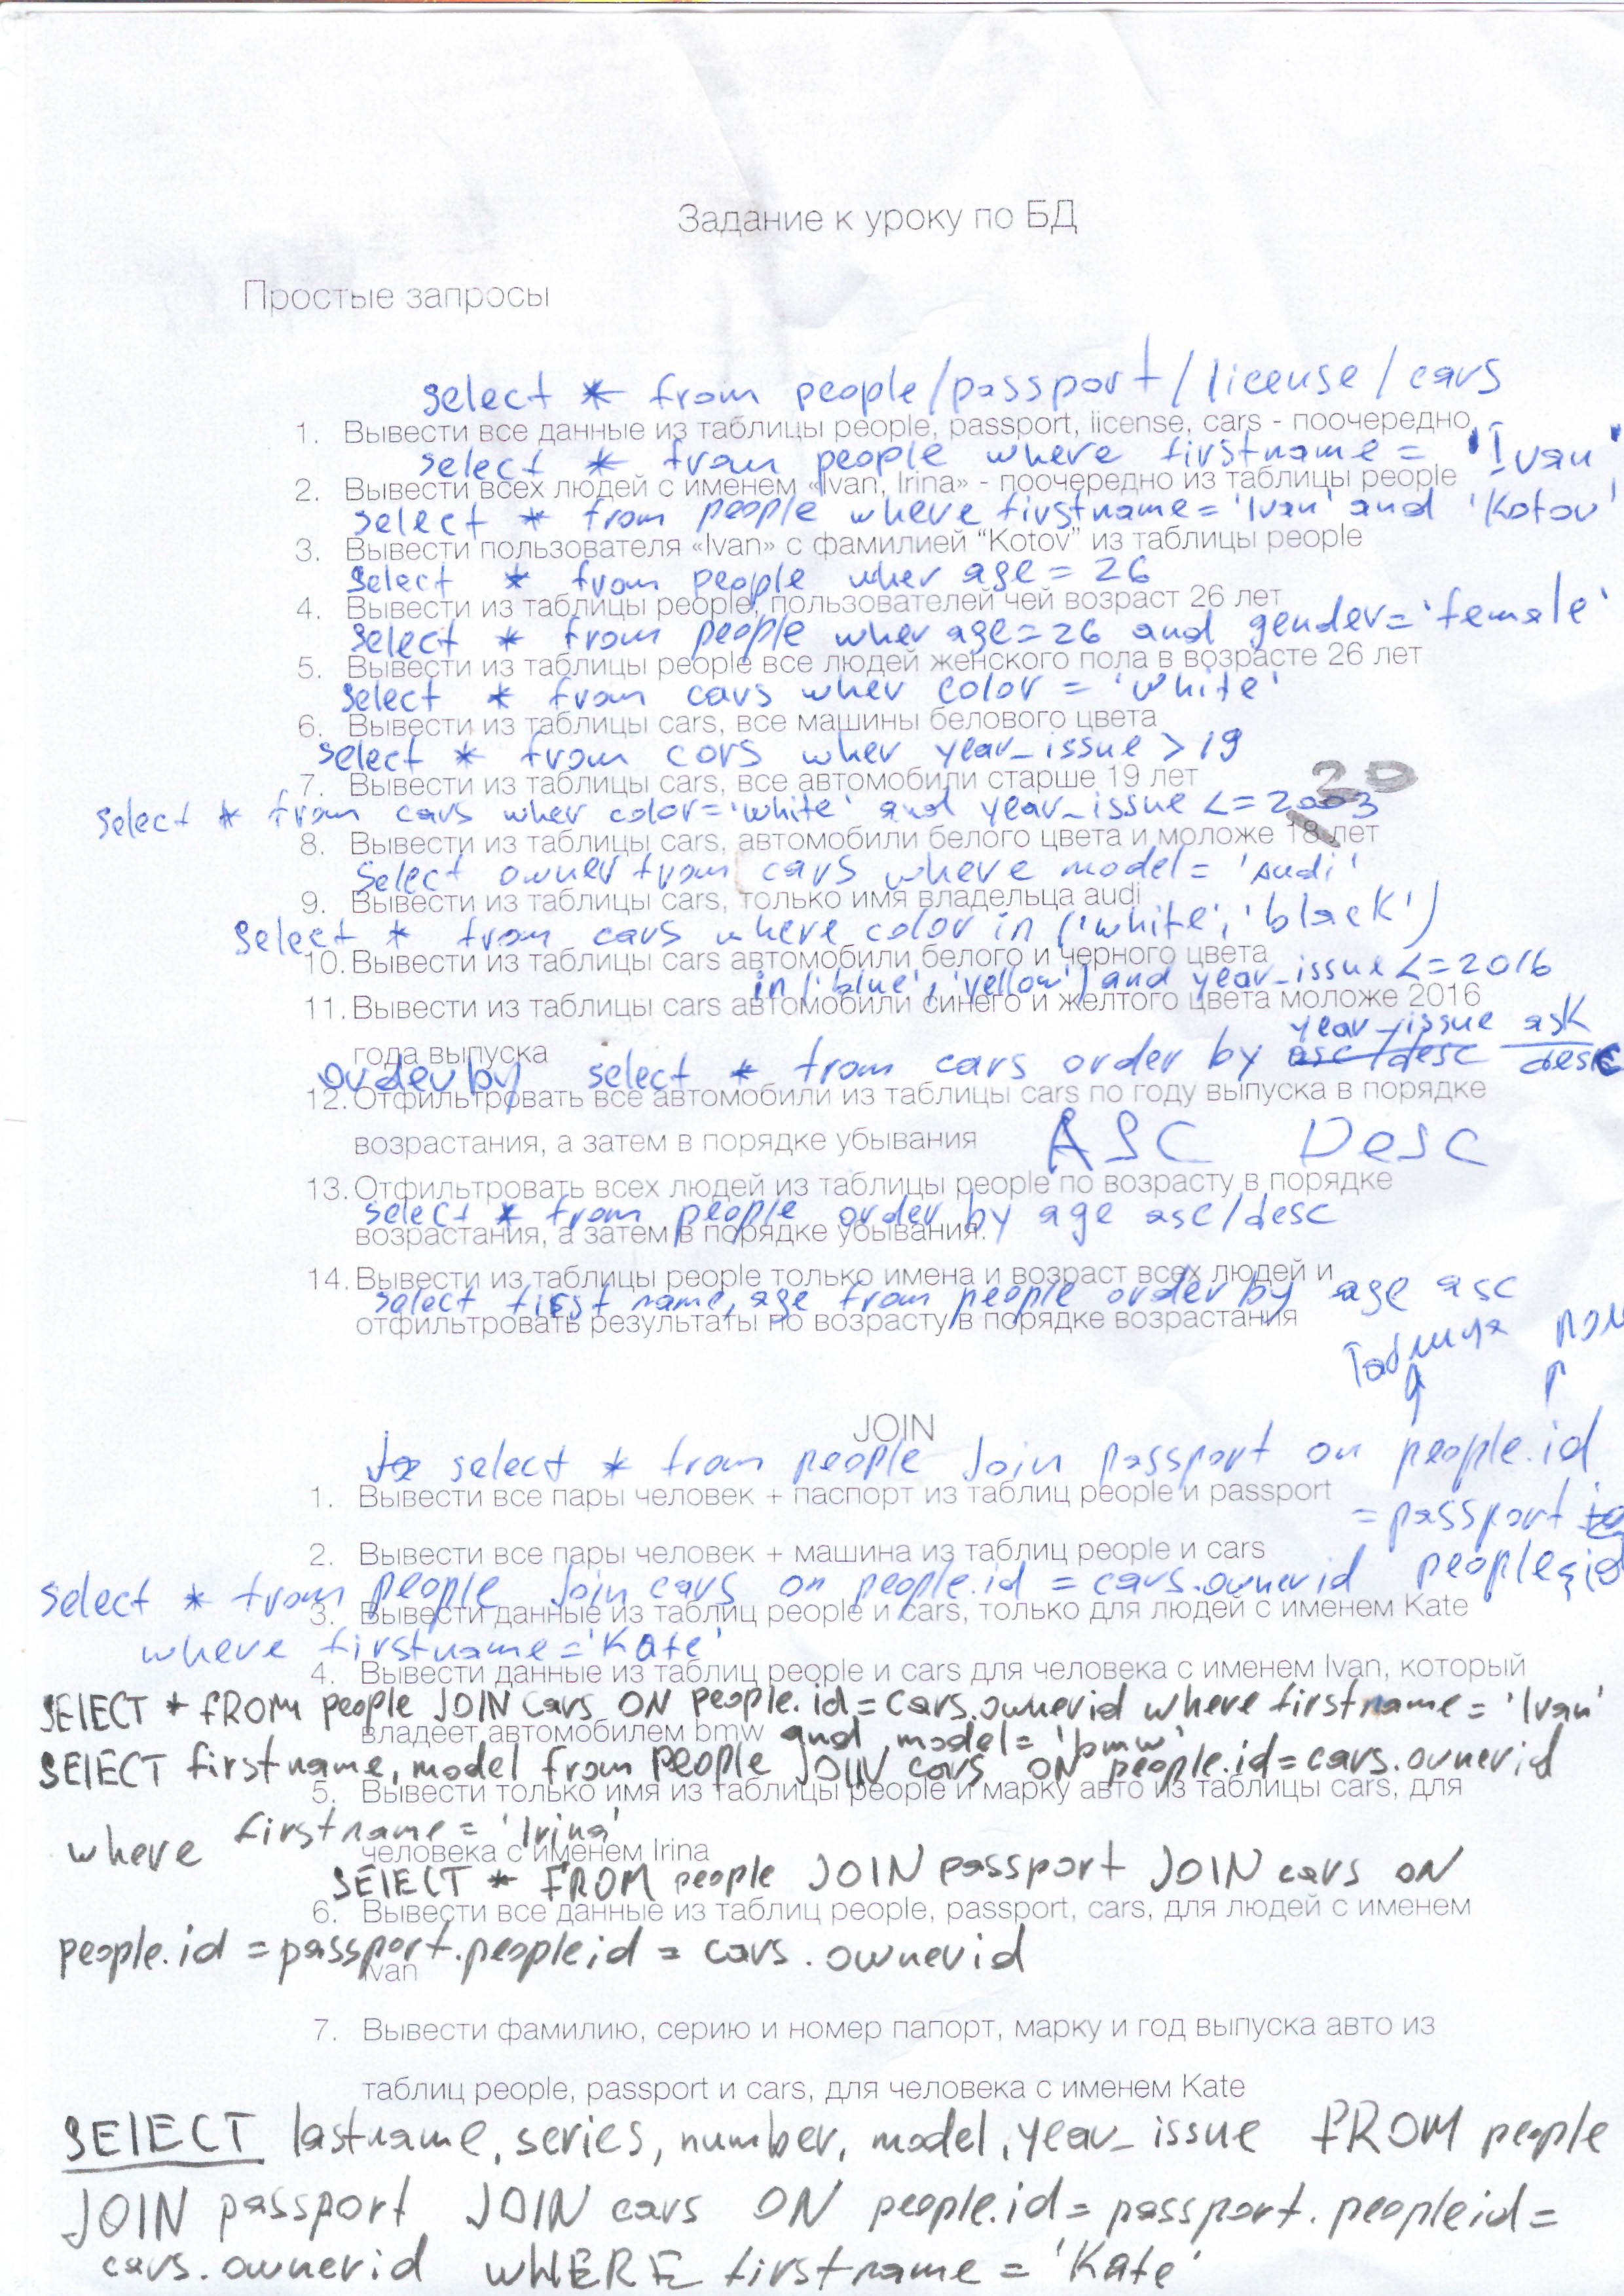 Задание к уроку по БД
Простые запросы
select * from people/passport/license/cars
1. Вывести все данные из таблицы people, passport, license, cars - поочередно
select * from people where firstname = 'Ivan'
2. Вывести всех людей с именем «Ivan, Irina» - поочередно из таблицы people
select * from people where firstname = 'Ivan' and 'Kotov'
3. Вывести пользователя «Ivan» с фамилией “Kotov” из таблицы people
select * from people wher age = 26
4. Вывести из таблицы people, пользователей чей возраст 26 лет
select * from people wher age = 26 and gender = 'female'
5. Вывести из таблицы people все людей женского пола в возрасте 26 лет
select * from cars wher color = 'white'
6. Вывести из таблицы cars, все машины белового цвета
select * from cors wher year_issue > 19
7. Вывести из таблицы cars, все автомобили старше 19 лет
20
select * from cars wher color = 'white' and year_issue <= 2003
8. Вывести из таблицы cars, автомобили белого цвета и моложе 18 лет
Select owner from cars where model = 'Audi'
9. Вывести из таблицы cars, только имя владельца audi
select * from cars where color in ('white', 'black')
10. Вывести из таблицы cars автомобили белого и черного цвета
in ('blue', 'yellow') and year_issue <= 2016
11. Вывести из таблицы cars автомобили синего и желтого цвета моложе 2016
года выпуска
year_issue ask
order by select * from cars order by asc/desc desc
12. Отфильтровать все автомобили из таблицы cars по году выпуска в порядке
возрастания, а затем в порядке убывания ASC Desc
13. Отфильтровать всех людей из таблицы people по возрасту в порядке
select * from people order by age asc/desc
возрастания, а затем в порядке убывания.
14. Вывести из таблицы people только имена и возраст всех людей и
select first name, age from people order by age asc
отфильтровать результаты по возрасту в порядке возрастания
Таблица
JOIN
select * from people Join passport on people.id
1. Вывести все пары человек + паспорт из таблиц people и passport
= passport
2. Вывести все пары человек + машина из таблиц people и cars
people id
select * from people Join cars on people.id = cars.ownerid
3. Вывести данные из таблиц people и cars, только для людей с именем Kate
where firstname = 'Kate'
4. Вывести данные из таблиц people и cars для человека с именем Ivan, который
SElECT * fROM people JOIN cars ON people.id = cars.ownerid where firstname = 'Ivan'
владеет автомобилем bmw
and model = 'bmw'
SElECT firstname, model from people JOIN cars ON people.id = cars.ownerid
5. Вывести только имя из таблицы people и марку авто из таблицы cars, для
where firstname = 'Irina'
человека с именем Irina
SElECT * FROM people JOIN passport JOIN cars ON
6. Вывести все данные из таблиц people, passport, cars, для людей с именем
people.id = passport.peopleid = cars.ownerid
Ivan
7. Вывести фамилию, серию и номер папорт, марку и год выпуска авто из
таблиц people, passport и cars, для человека с именем Kate
SElECT lastname, series, number, model, year_issue FROM people
JOIN passport JOIN cars ON people.id = passport.peopleid =
cars.ownerid WHERE firstname = 'Kate'